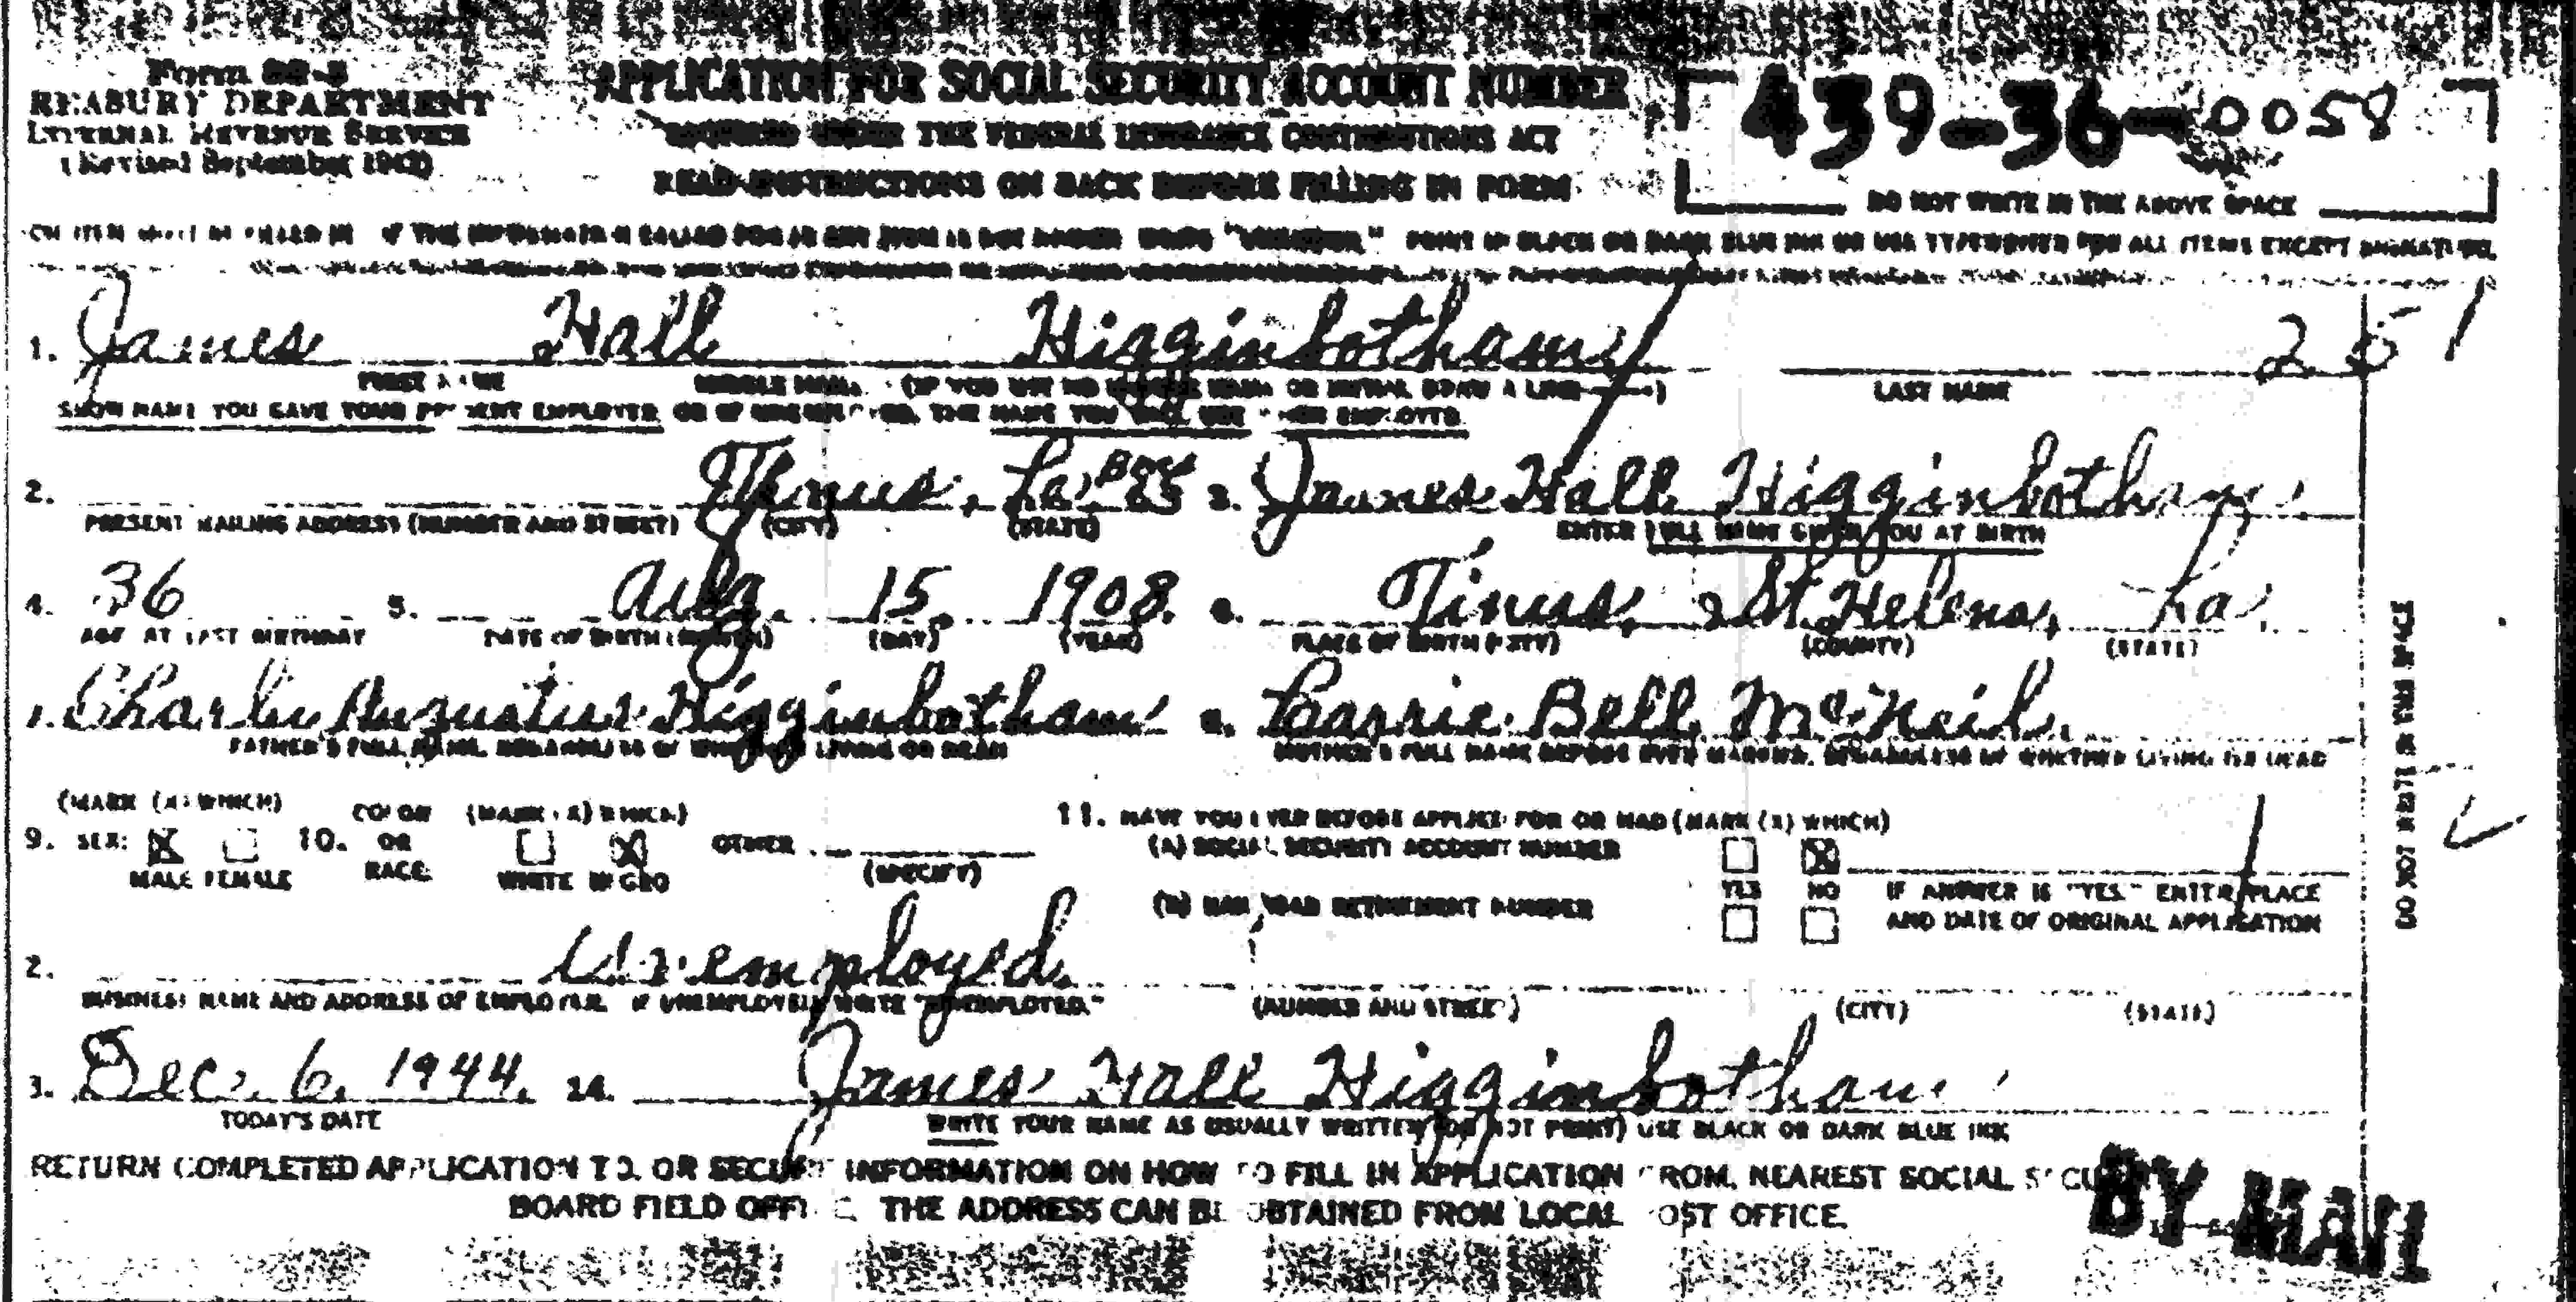 Form SS-5
TREASURY DEPARTMENT
INTERNAL REVENUE SERVICE
(Revised September 1942)
APPLICATION FOR SOCIAL SECURITY ACCOUNT NUMBER
REQUIRED UNDER THE FEDERAL INSURANCE CONTRIBUTIONS ACT
READ INSTRUCTIONS ON BACK BEFORE FILLING IN FORM
439-36-0058
DO NOT WRITE IN THE ABOVE SPACE
IF THE INFORMATION CALLED FOR IN ANY ITEM IS NOT KNOWN WRITE "UNKNOWN" PRINT IN BLACK OR DARK BLUE INK OR USE TYPEWRITER FOR ALL ITEMS EXCEPT SIGNATURE.
1. James Hall Higginbotham 25
FIRST NAME MIDDLE NAME (IF YOU USE NO MIDDLE NAME OR INITIAL DRAW A LINE) LAST NAME
SHOW NAME YOU GAVE YOUR PRESENT EMPLOYER OR IF UNEMPLOYED, THE NAME YOU WILL USE WHEN EMPLOYED
2. La. Box 3. James Hall Higginbotham
PRESENT MAILING ADDRESS (NUMBER AND STREET) (CITY) (STATE) ENTER FULL NAME GIVEN YOU AT BIRTH
4. 36 5. Aug. 15, 1908. 6. Tinus, St. Helena, La.
AGE AT LAST BIRTHDAY DATE OF BIRTH (MONTH) (DAY) (YEAR) PLACE OF BIRTH (CITY) (COUNTY) (STATE)
Charlie Augustus Higginbotham 8. Carrie Bell McNeil
FATHER'S FULL NAME, REGARDLESS OF WHETHER LIVING OR DEAD MOTHER'S FULL NAME BEFORE EVER MARRIED, REGARDLESS OF WHETHER LIVING OR DEAD
(MARK (X) WHICH) COLOR (MARK (X) WHICH) 11. HAVE YOU EVER BEFORE APPLIED FOR OR HAD (MARK (X) WHICH)
9. SEX: 10. OR OTHER (A) SOCIAL SECURITY ACCOUNT NUMBER
MALE FEMALE RACE: WHITE NEGRO (SPECIFY) YES NO IF ANSWER IS "YES" ENTER PLACE
(B) RAILROAD RETIREMENT NUMBER AND DATE OF ORIGINAL APPLICATION
2. Unemployed
BUSINESS NAME AND ADDRESS OF EMPLOYER. IF UNEMPLOYED, WRITE "UNEMPLOYED." (NUMBER AND STREET) (CITY) (STATE)
3. Dec. 6, 1944. 14. James Hall Higginbotham
TODAY'S DATE WRITE YOUR NAME AS USUALLY WRITTEN (DO NOT PRINT) USE BLACK OR DARK BLUE INK
RETURN COMPLETED APPLICATION TO, OR SECURE INFORMATION ON HOW TO FILL IN APPLICATION FROM, NEAREST SOCIAL SECURITY
BOARD FIELD OFFICE. THE ADDRESS CAN BE OBTAINED FROM LOCAL POST OFFICE.
BY MAIL
DO NOT WRITE IN THIS SPACE